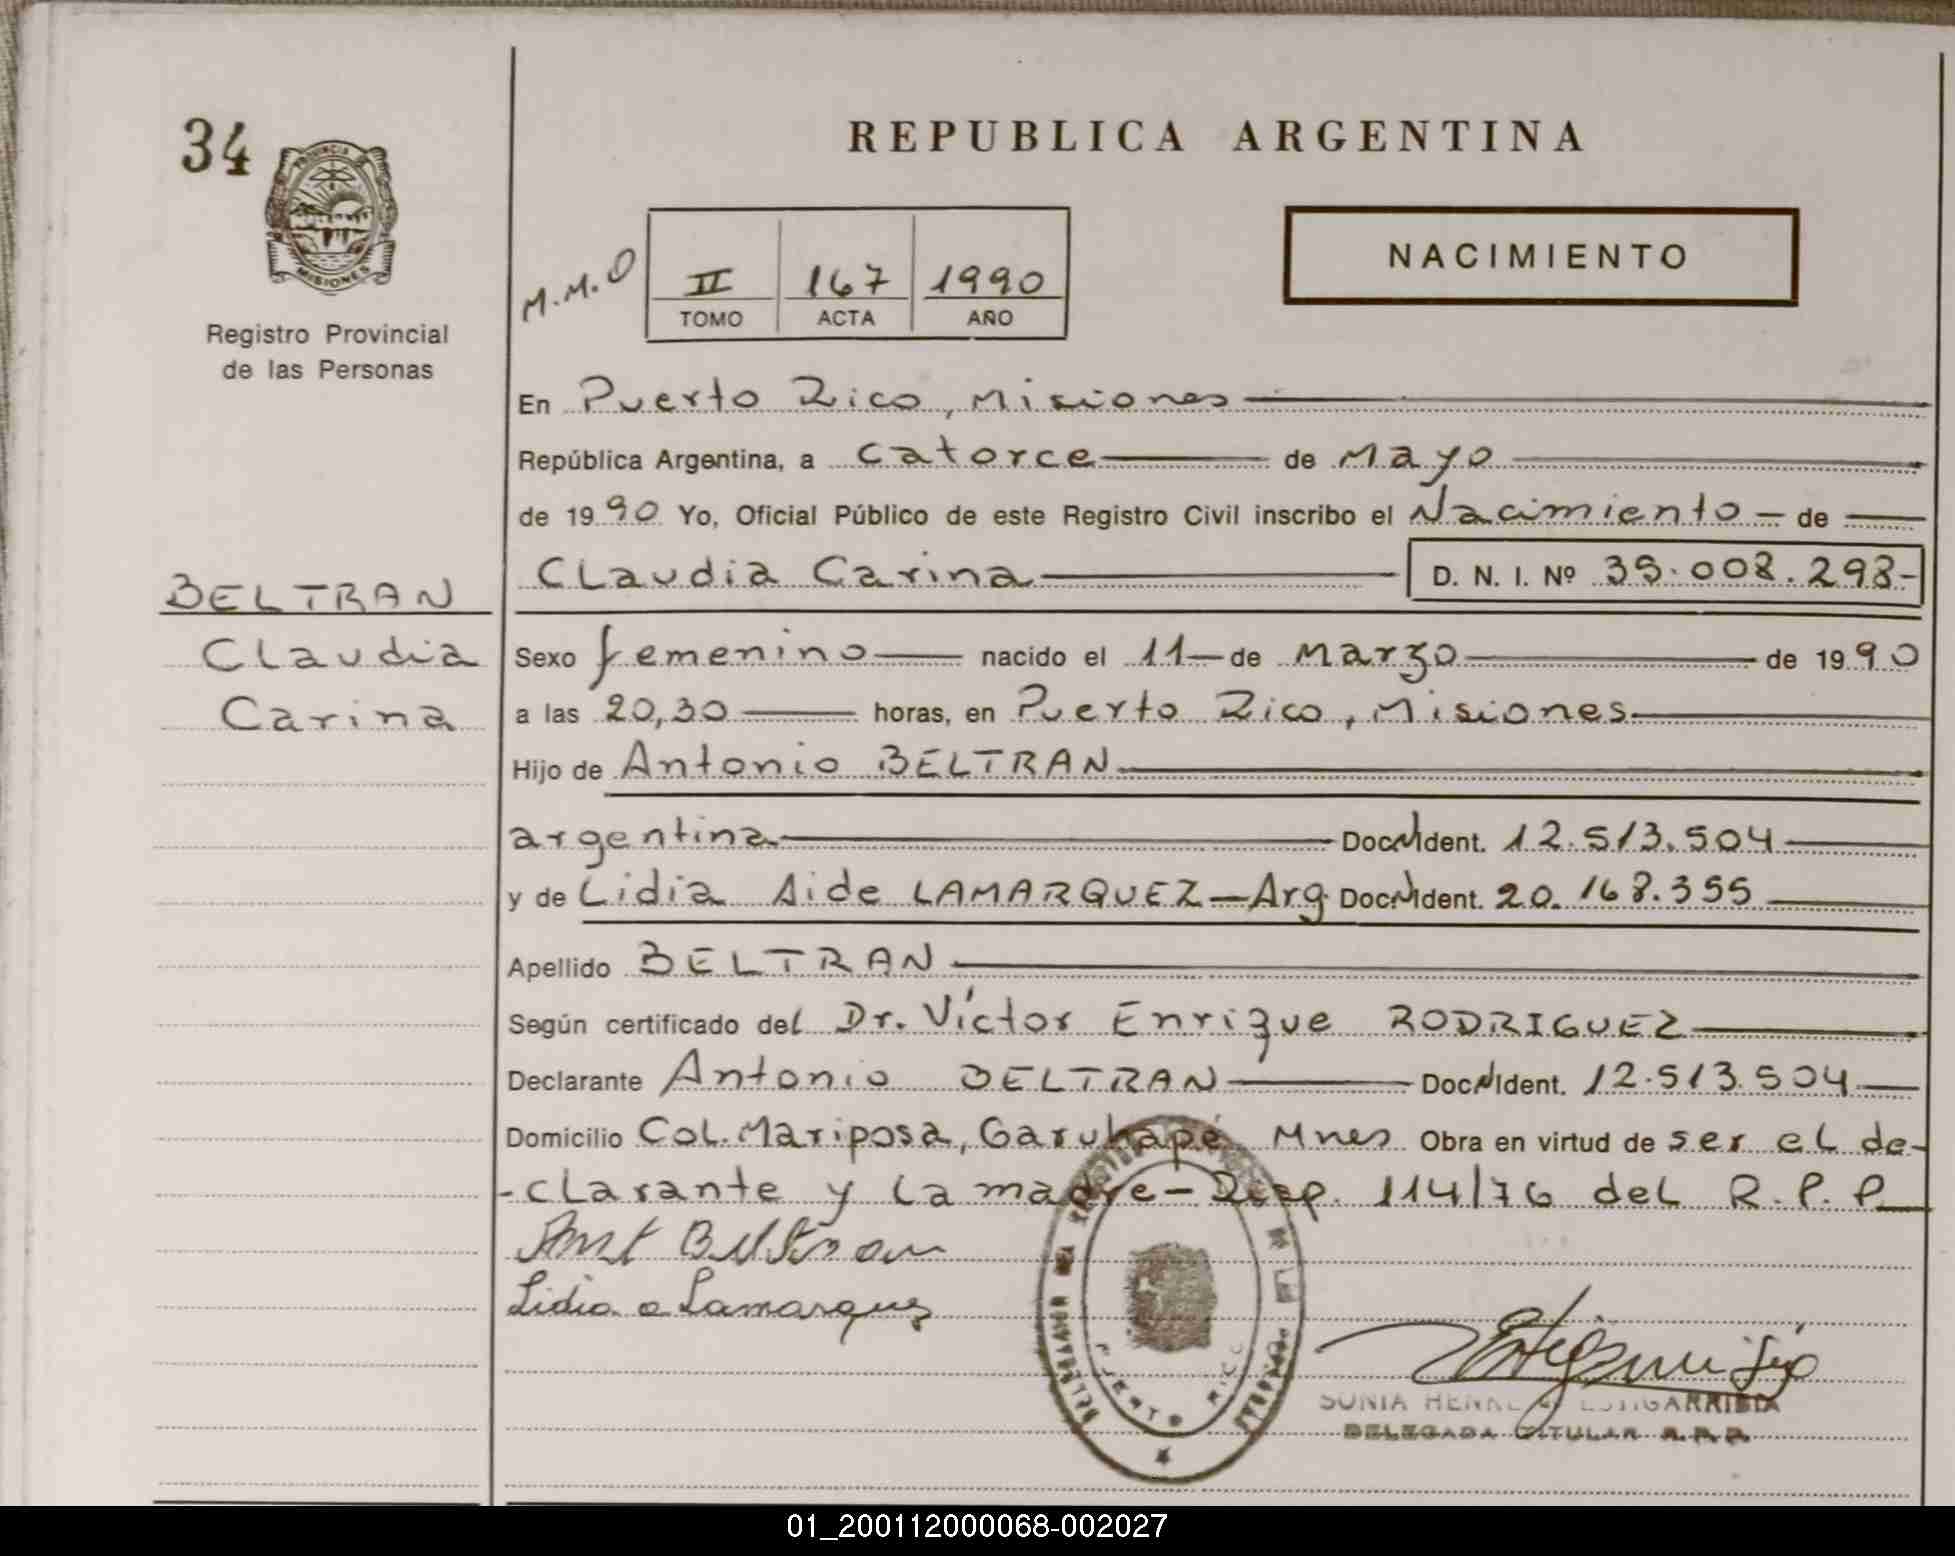 34
PROVINCIA DE
MISIONES
Registro Provincial
de las Personas
REPUBLICA ARGENTINA
NACIMIENTO
M.M.O
II 167 1990
TOMO ACTA AÑO
En Puerto Rico, Misiones
República Argentina, a catorce de Mayo
de 1990 Yo, Oficial Público de este Registro Civil inscribo el Nacimiento de
Claudia Carina D. N. I. Nº 35.008.298-
BELTRAN
Claudia
Carina
Sexo femenino nacido el 11 de Marzo de 1990
a las 20,30 horas, en Puerto Rico, Misiones
Hijo de Antonio BELTRAN
argentina Doc.N.Ident. 12.513.504
y de Lidia Aide LAMARQUEZ - Arg. Doc.N.Ident. 20.168.355
Apellido BELTRAN
Según certificado del Dr. Víctor Enrique RODRIGUEZ
Declarante Antonio BELTRAN Doc.N.Ident. 12.513.504
Domicilio Col. Mariposa, Garuhapé Mnes Obra en virtud de ser el de-
-clarante y la madre - Disp. 114/76 del R.P.P
Ant Beltran
Lidia a Lamarquez
PUERTO RICO
SONIA HENN DE ESTIGARRIBIA
DELEGADA TITULAR R.P.P.
01_200112000068-002027